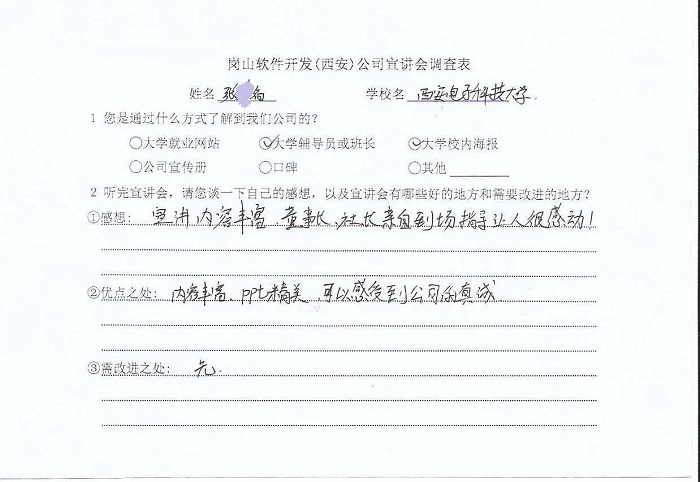 岗山软件开发(西安)公司宣讲会调查表
姓名 张 学校名 西安电子科技大学.
1 您是通过什么方式了解到我们公司的?
○大学就业网站 ○大学辅导员或班长 ○大学校内海报
○公司宣传册 ○口碑 ○其他
2 听完宣讲会，请您谈一下自己的感想，以及宣讲会有哪些好的地方和需要改进的地方?
①感想: 宣讲内容丰富、董事长、社长亲自到场指导让人很感动!
②优点之处: 内容丰富、PPt精美、可以感受到公司的真诚
③需改进之处: 无.